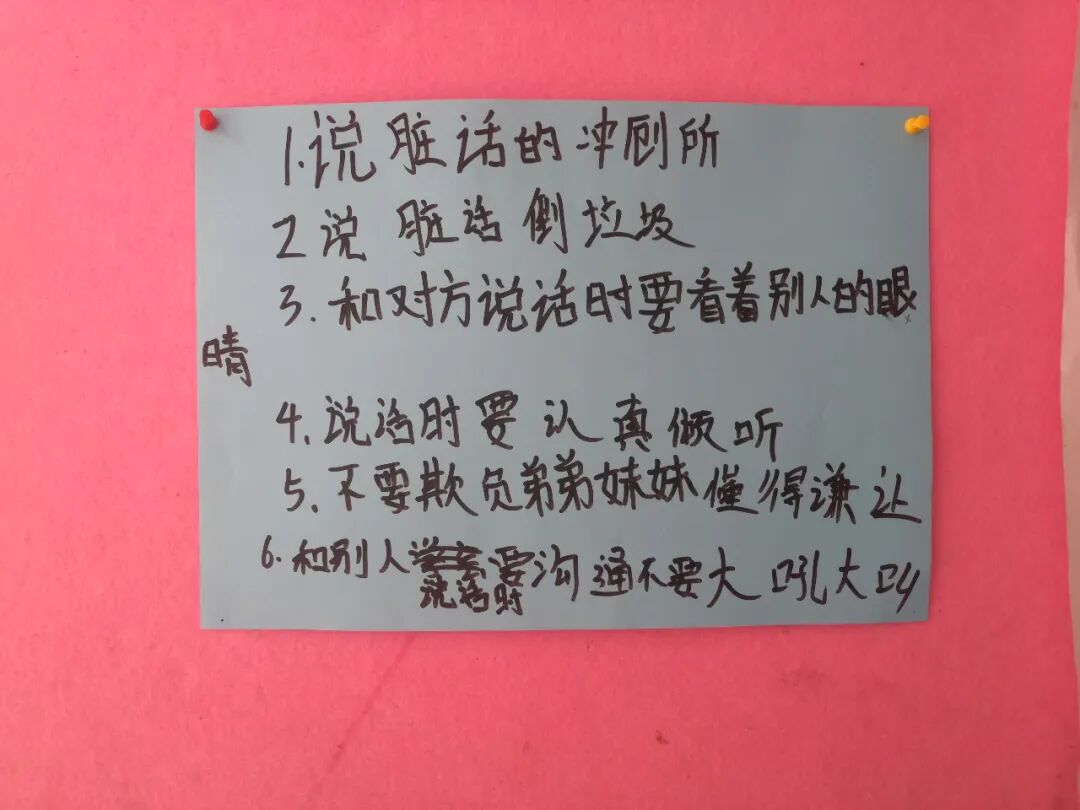 1.说脏话的冲厕所
2说脏话倒垃圾
3.和对方说话时要看着别人的眼
睛
4.说话时要认真倾听
5、不要欺负弟弟妹妹懂得谦让
6.和别人要沟通不要大吼大叫
说话时